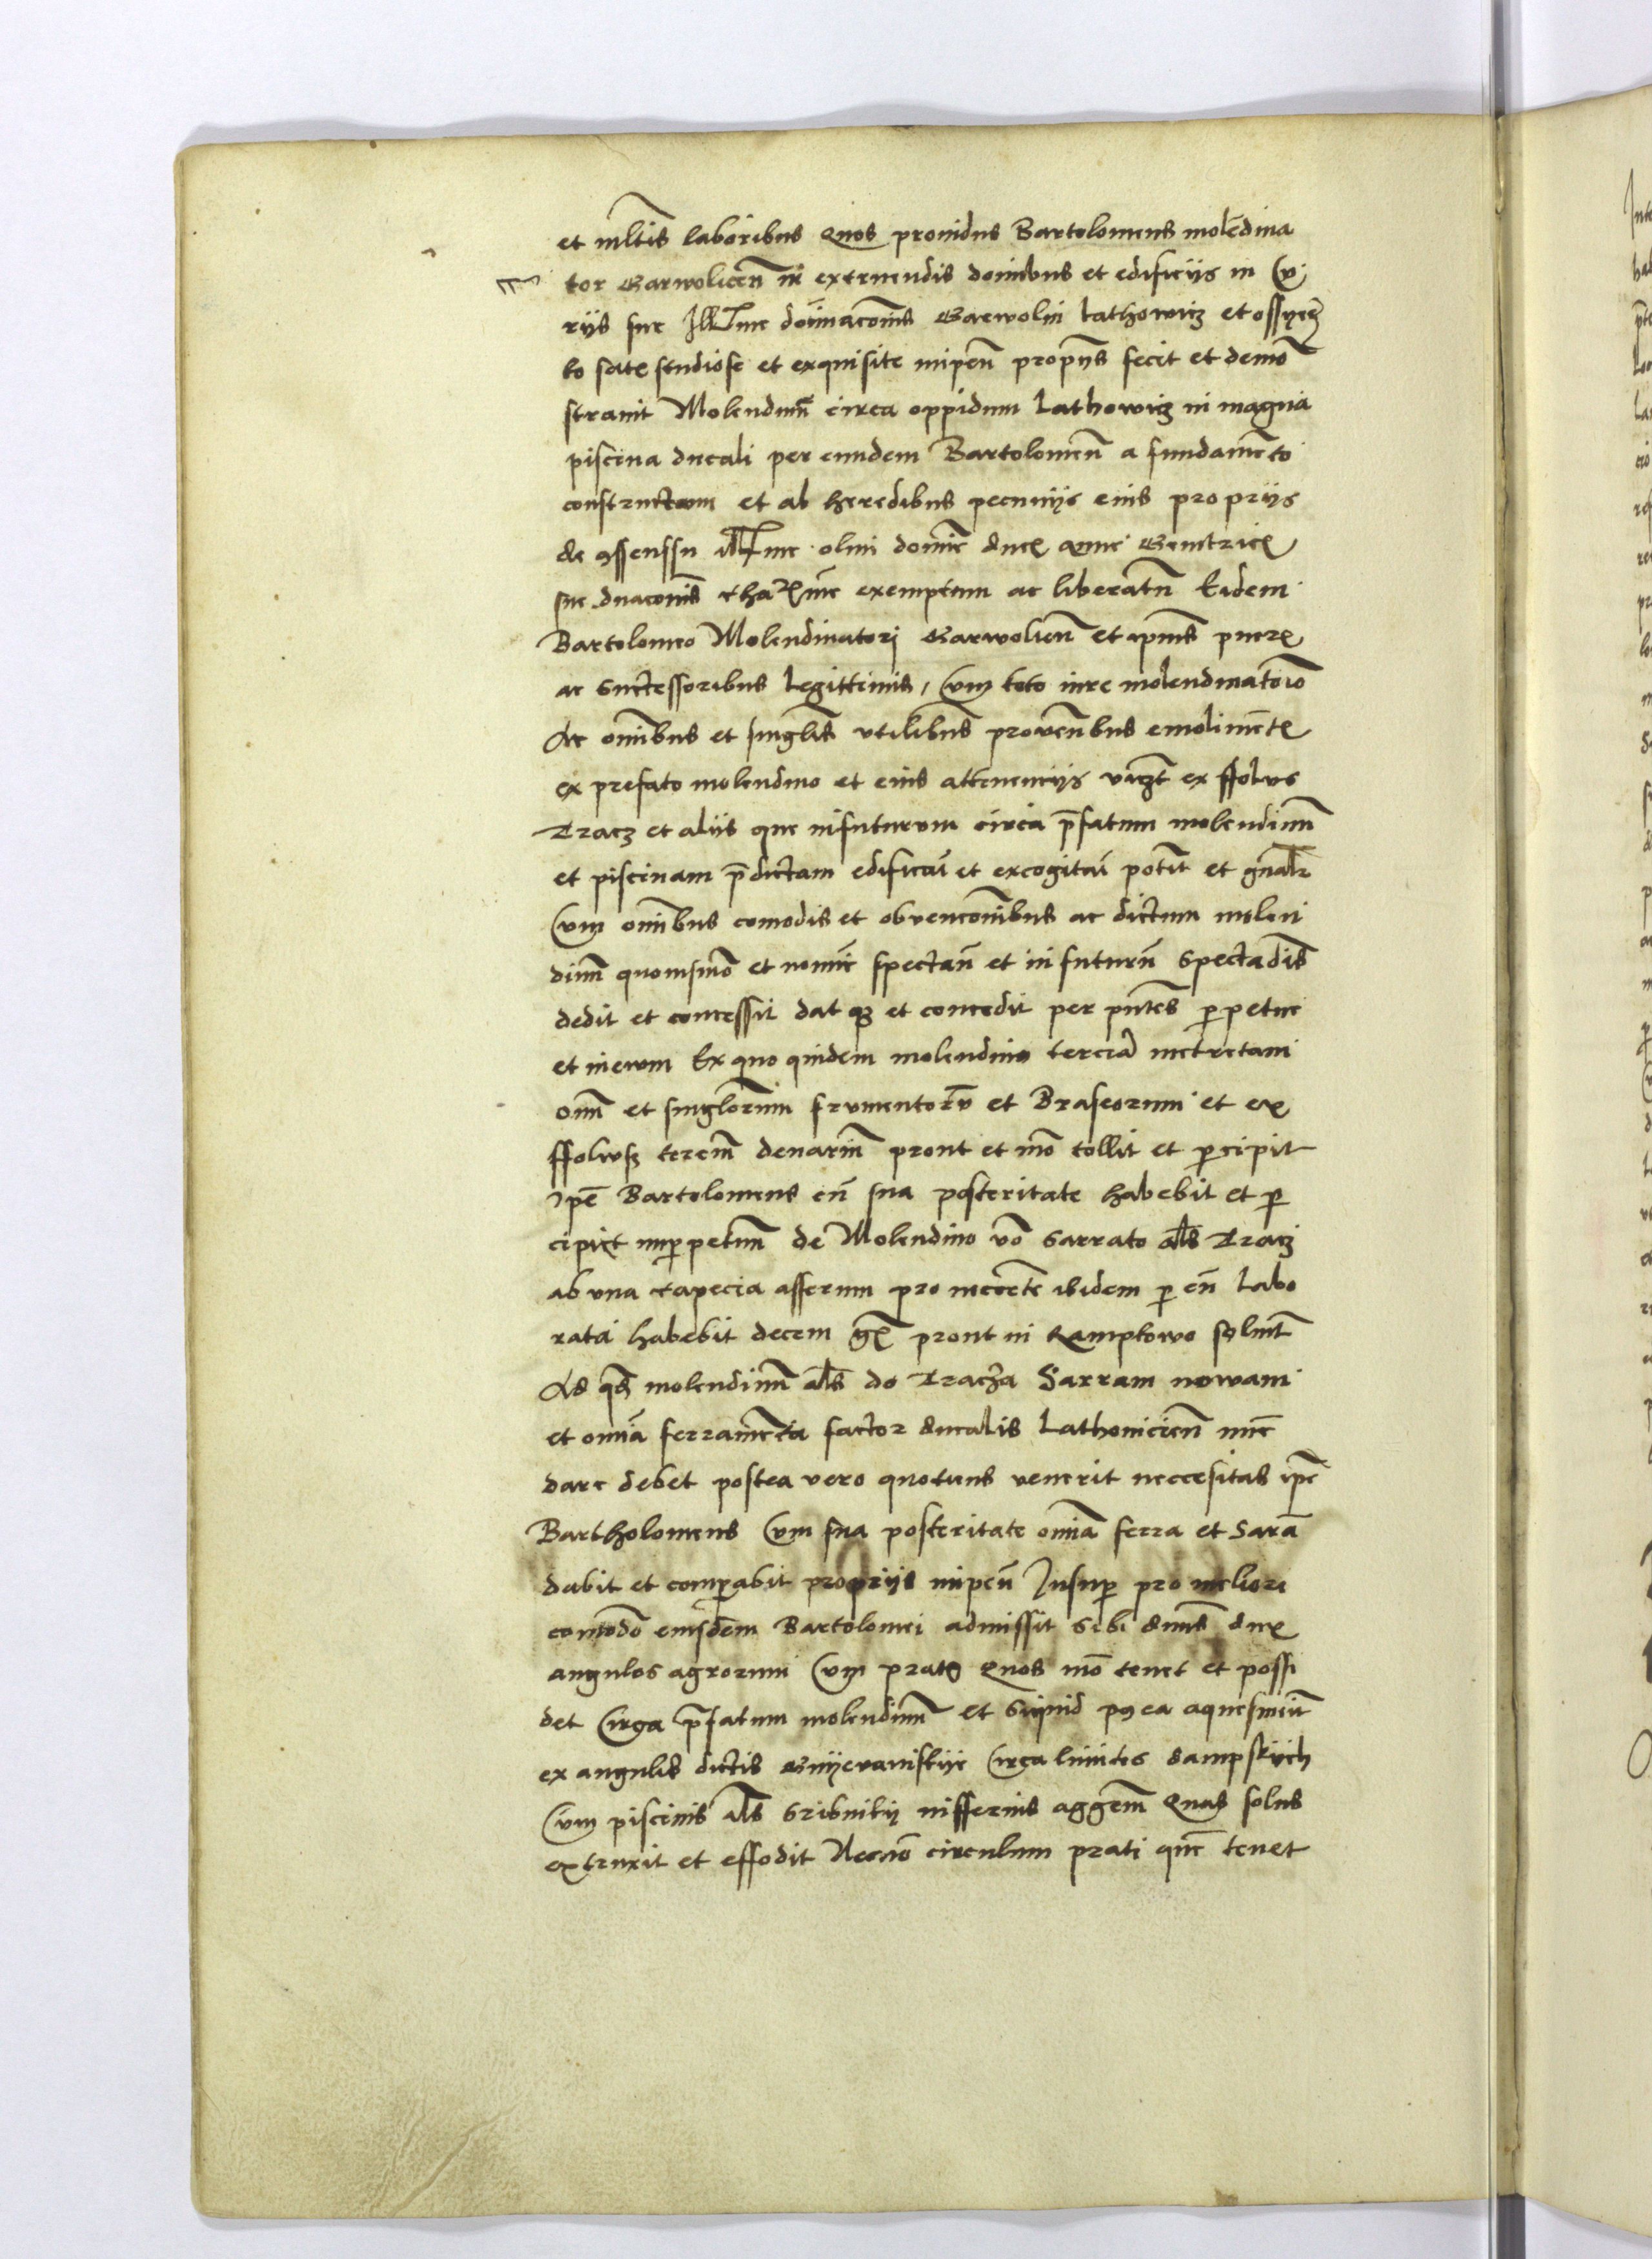 et mltis laboribus Quos prouidus Bartolomeus molēdina
tor Garwolicen̄ in extruendis domibus et edificiis in Cu
riis sue Illme dominaconis Garwolin Lathowicz et Ossyecz
ko satis studiose et exquisite impen̄ propriis fecit et demō
strauit Molendinū circa oppidum Lathowicz in magna
piscina ducali per eundem Bartolomeū a fundamēto
constructum et ab heredibus pecuniis eius propriis
de 9sensu illme olim domīe ducis Anne Genitricis
sue exemptum ac liberatū Eidem
Bartolomeo Molendinatori Garwolien̄ et ipius pueris
ac Successoribus legittimis, Cum toto iure molendinatorio
Ac omībus et singlis vtilibus prouen̄bus emolimētis
ex prefato molendino et eius attinenciis viczt ex ffolus
Tracz et aliis que infuturum circa p̄fatum molendinū
et piscinam p̄dictam edificari et excogitari potūt et gnalr
Cum omībus comodis et obuenconibus ac dictum molen
dinū quouismō et nomīe spectan̄ et in futurū Spectādis
dedit et concessit dat qz et concedit per pn̄tes perpetue
et in ewm Ex quo quidem molendino terciā metretam
omī et singlorum frumentorū et Braseorum et ex
ffolusz terciū denariū prout et mō tollit et percipit
ipē Bartolomeus cū sua posteritate habebit et per
cipiet imperpetuū de Molendino vō Sarrato als Tracz
ab vna tapecia asserum pro mercēte ibidem per eū labo
rata habebit decem gs prout in Ramptowo soluūt
Ad qd molendinū als do Tracza Sarram nowam
et omīa ferramēta factor ducalis Lathouicien̄ nūc
dare debet postea vero quotiens venerit neccesitas ipē
Bartholomeus Cum sua posteritate omīa ferra et Sarā
dabit et comparabit propriis impen̄ Insuper pro meliori
comodo eiusdem Bartolomei admissit sibi dnus dux
angulos agrorum Cum pratis Quos mō tenet et possi
det Circa p̄fatum molendinū et
ex angulis dictis Circa limites dampskich
Cum piscinis als Sribniky aggerem Quas solus
extruxit et effodit Necnō circulum prati quē tenet